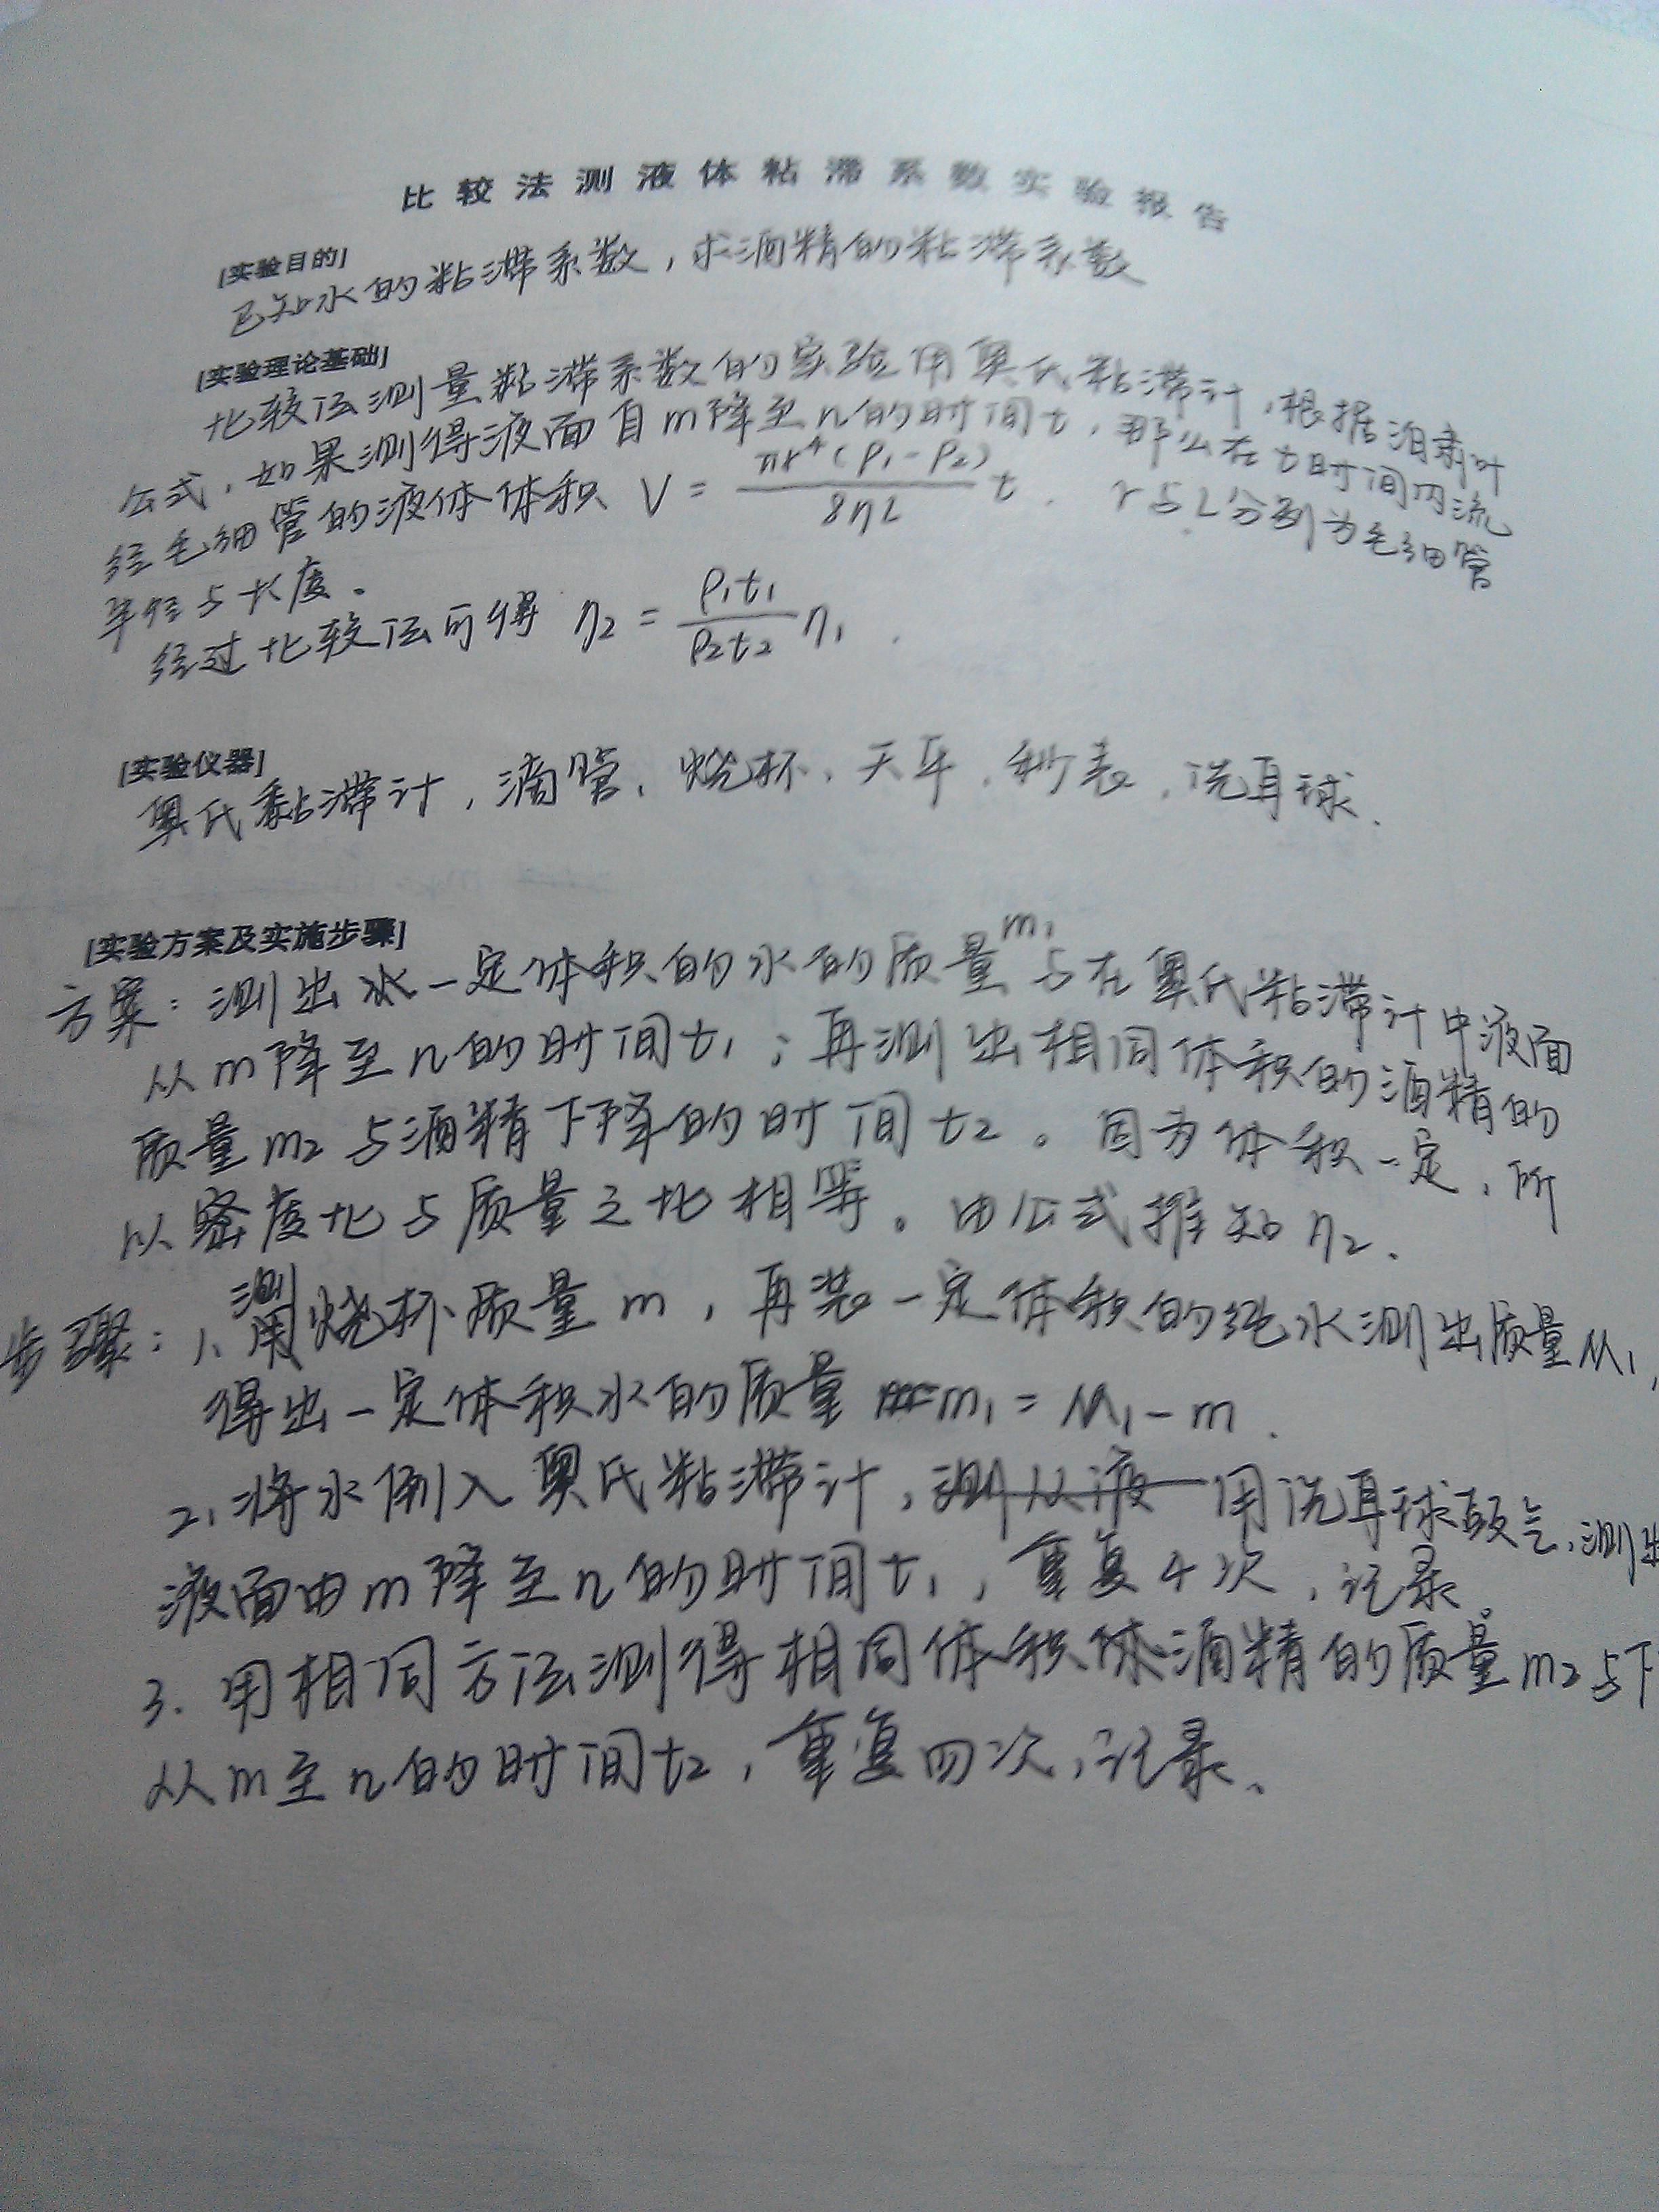 比较法测液体粘滞系数实验报告
[实验目的]
已知水的粘滞系数，求酒精的粘滞系数
[实验理论基础]
比较法测量粘滞系数的实验用奥氏粘滞计，根据泊肃叶
公式，如果测得液面自m降至n的时间t，那么在t时间内流
经毛细管的液体体积 V = πr⁴(P₁-P₂)/8ηL t . r与L分别为毛细管
半径与长度。
经过比较法可得 η₂ = ρ₁t₁/ρ₂t₂ η₁ .
[实验仪器]
奥氏黏滞计，滴管、烧杯、天平、秒表、洗耳球.
[实验方案及实施步骤]
方案：测出水一定体积的水的质量m₁与在奥氏粘滞计中液面
从m降至n的时间t₁；再测出相同体积的酒精的
质量m₂与酒精下降的时间t₂。因为体积一定，所
以密度比与质量之比相等。由公式推知η₂.
步骤：1、测烧杯质量m，再装一定体积的纯水测出质量M₁，
得出一定体积水的质量m₁=M₁-m.
2、将水倒入奥氏粘滞计，测从液 用洗耳球鼓气，测出
液面由m降至n的时间t₁，重复4次，记录。
3. 用相同方法测得相同体积酒精的质量m₂与下
从m至n的时间t₂，重复四次，记录、